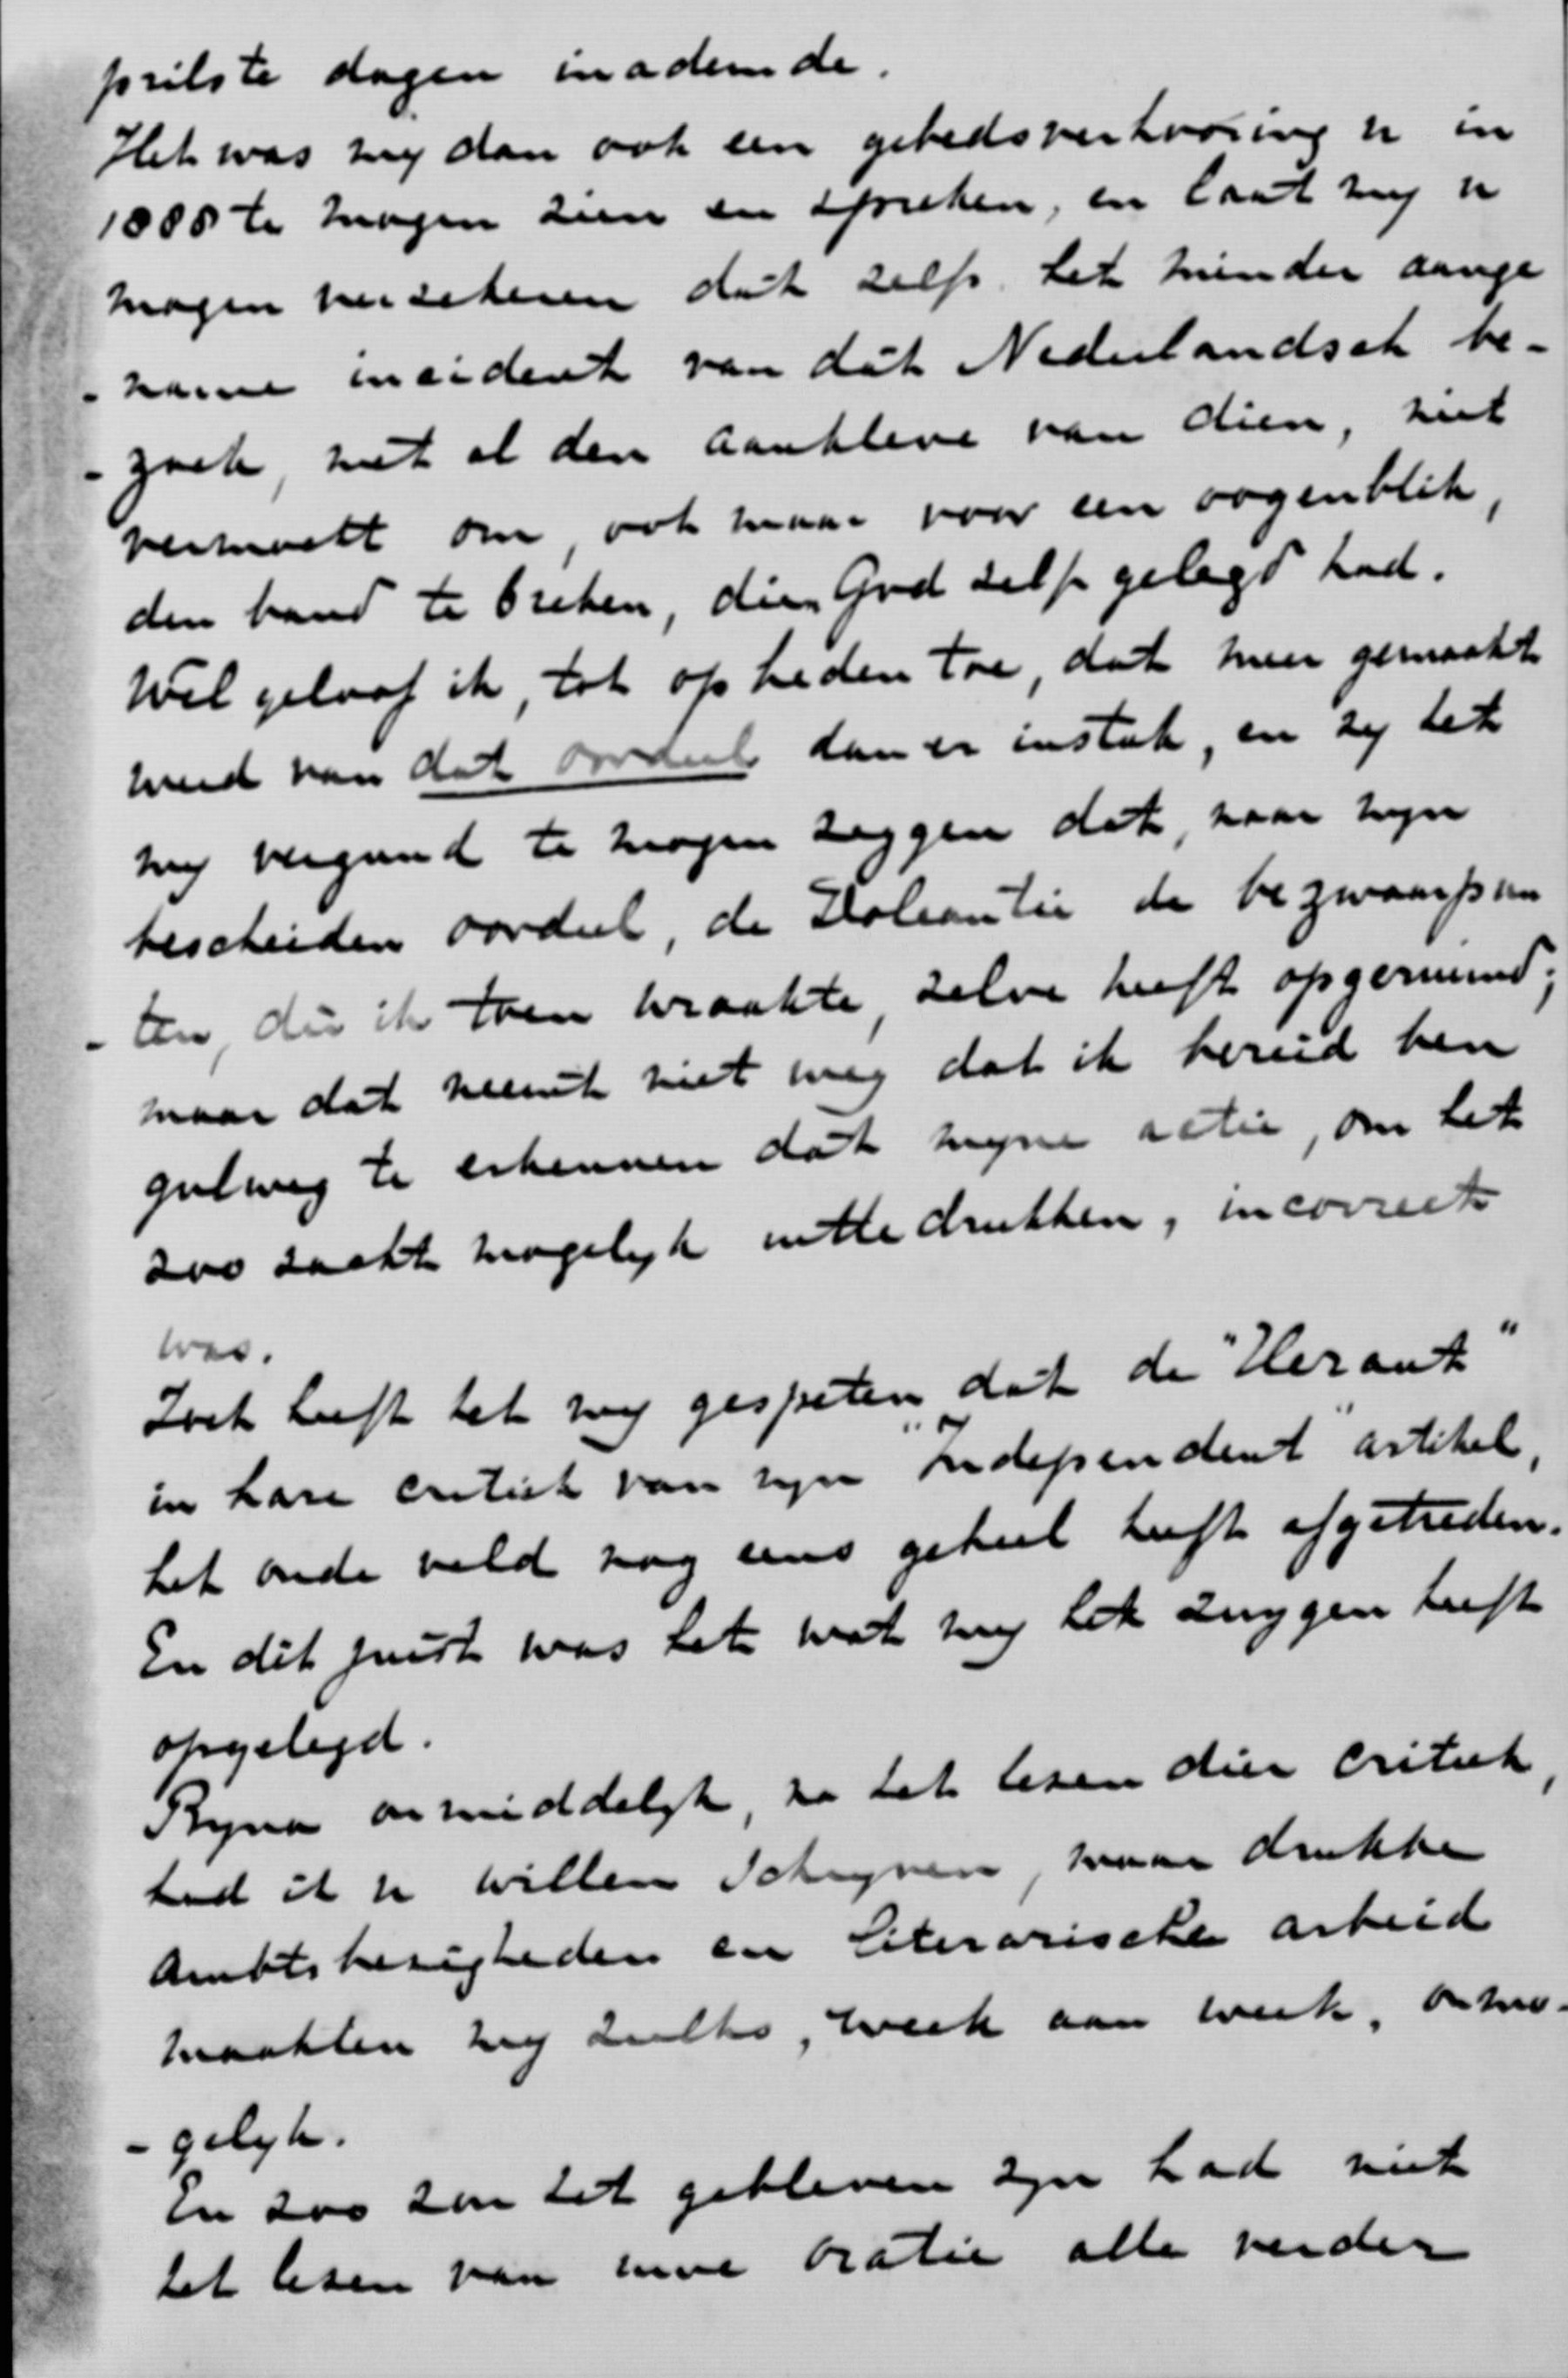 prilste dagen inademde.
Het was my dan ook een gebedsverhooring u in
1888 te mogen zien en spreken, en laat my u
mogen verzekeren dat zelfs het minder aange
- name incident van dat Nederlandsch be-
- zoek, met al den aankleve van dien, niet
vermocht om, ook maar voor een oogenblik,
den band te breken, dien God zelf gelegd had.
Wel geloof ik, tot op heden toe, dat meer gemaakt
werd van dat oordeel dan er instak, en zy het
my vergund te mogen zeggen dat, naar myn
bescheiden oordeel, de Doleantie de bezwaarpun
- ten, die ik toen wraakte, zelve heeft opgeruimd;
maar dat neemt niet weg dat ik bereid ben
gulweg te erkennen dat myne actie, om het
zoo zacht mogelyk uit te drukken, incorrect
was.
Toch heeft het my gespeten dat de "Heraut"
in hare critiek van myn "Independent" artikel,
het oude veld nog eens geheel heeft afgetreden.
En dit juist was het wat my het zwygen heeft
opgelegd.
Byna onmiddelyk, na het lesen dier critiek,
had ik u willen schryven, maar drukke
Ambtsbezigheden en literarische arbeid
maakten my zulks, week aan week, onmo-
- gelyk.
En zoo zou het gebleven zyn had niet
het lesen van uwe oratie alle verder